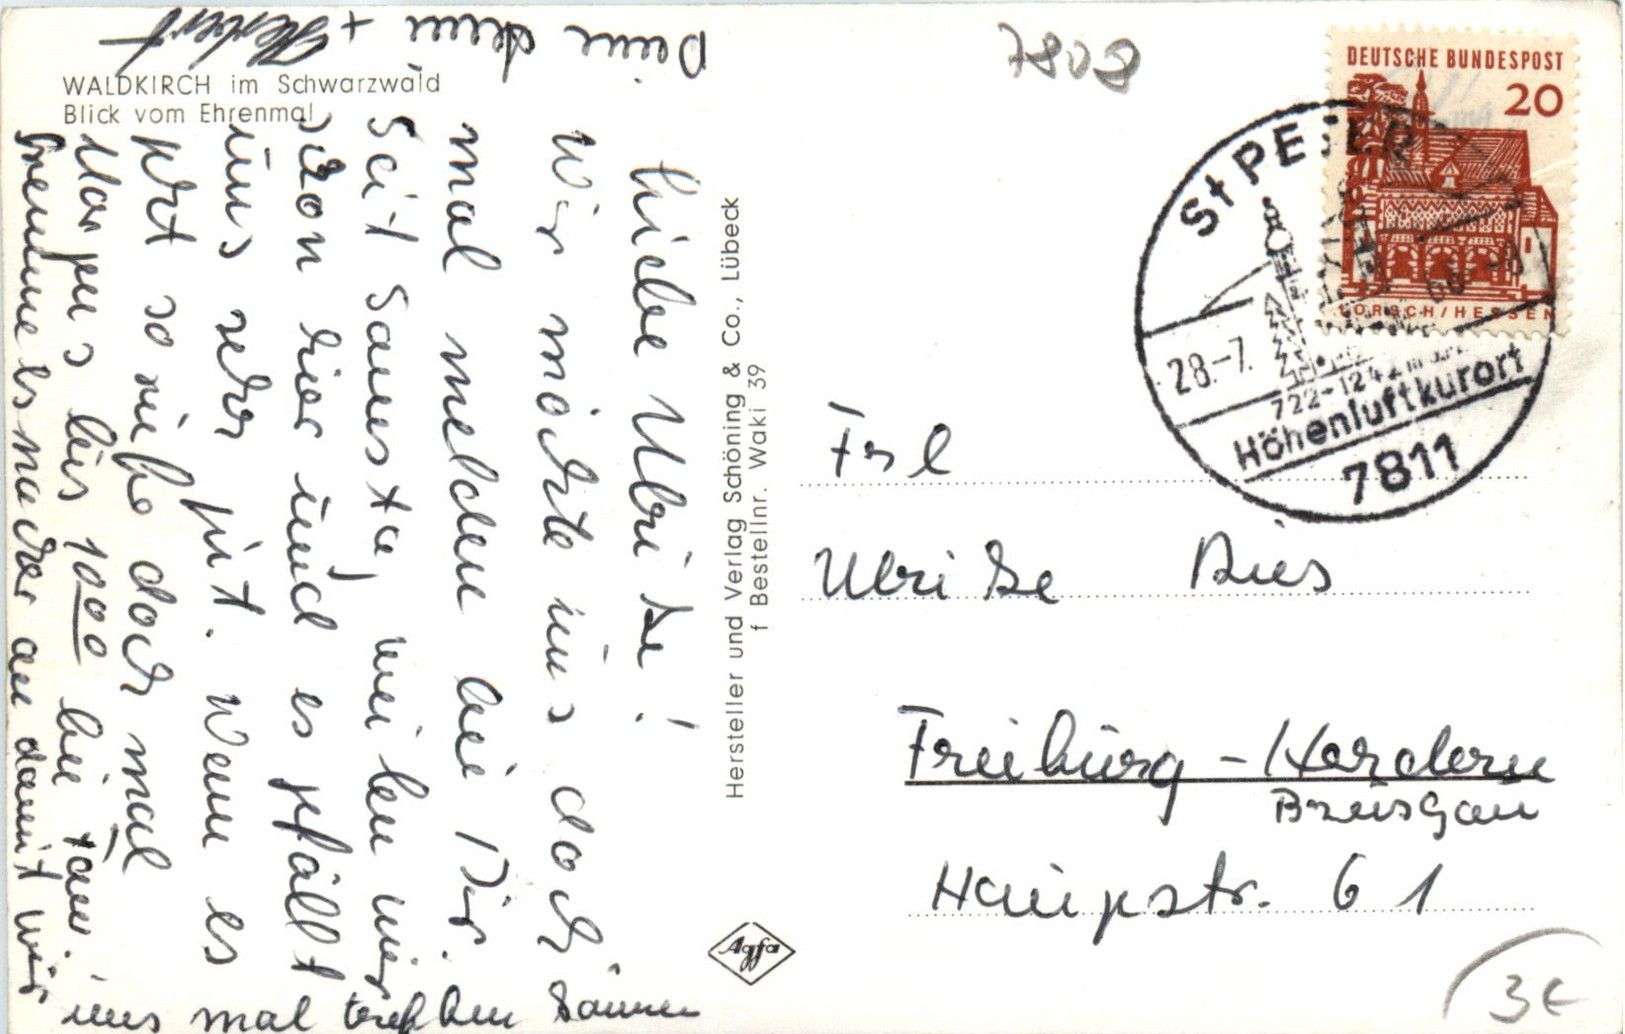 WALDKIRCH im Schwarzwald
Blick vom Ehrenmal
Liebe Ulrike!
Wir möchte uns doch
mal melden bei Dir.
Seit Samstag weilen wir
schon hier und es gfällt
uns sehr gut. Wenn es
geht so rufe doch mal
Morgens bis 10⁰⁰ bei
an damit wir
uns mal treffen können
Deine +
Herbert
Hersteller und Verlag Schöning & Co., Lübeck
f Bestellnr. Waki 39
Agfa
7808
DEUTSCHE BUNDESPOST
20
LORSCH/HESSEN
St PETER
28.-7.
722-1242m
Höhenluftkurort
7811
Frl
Ulrike
Freiburg - Herdern
Breisgau
Haupstr. 61
3€